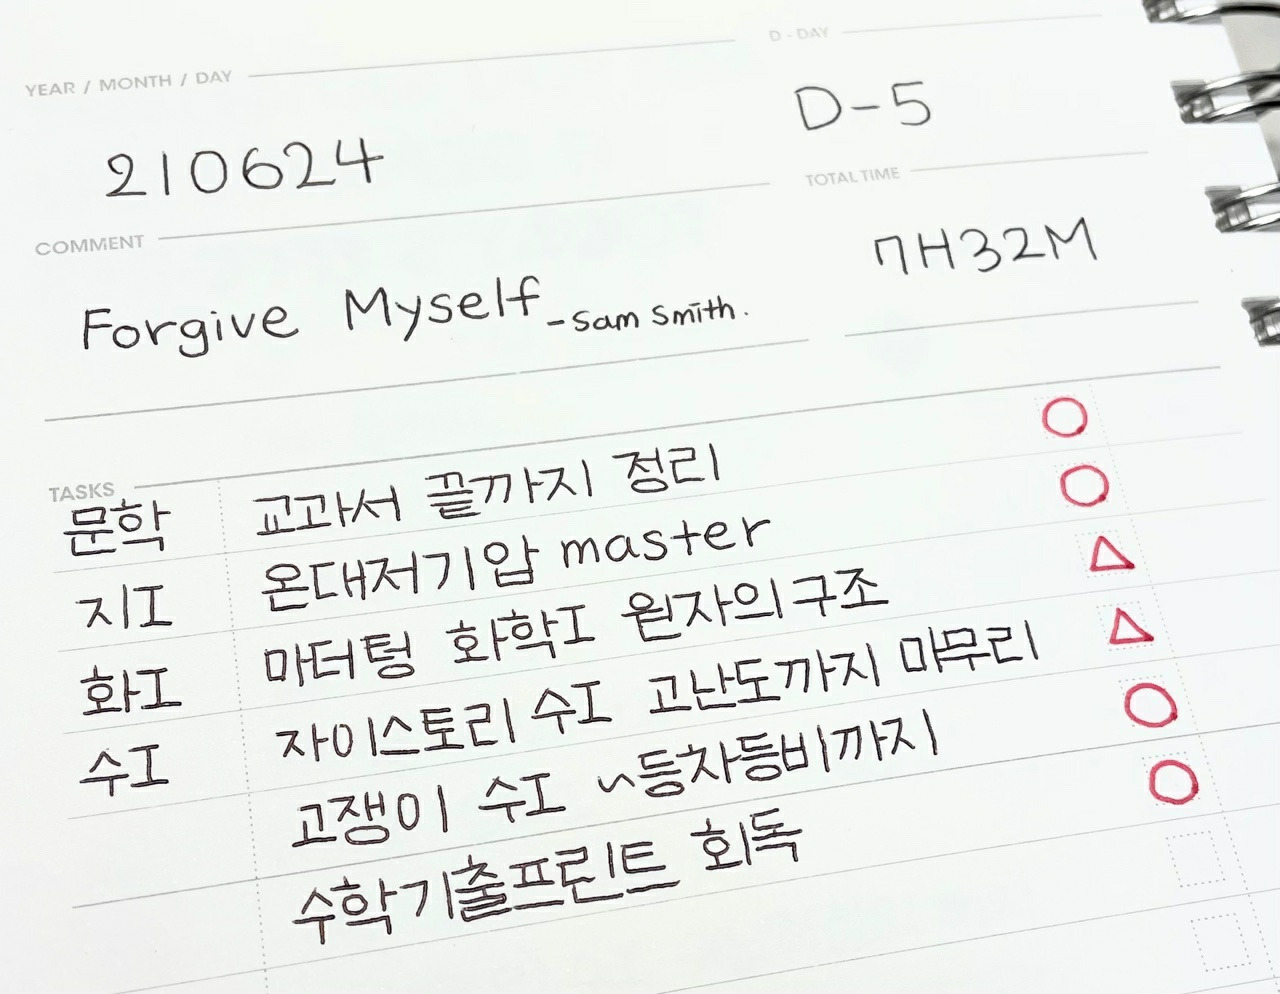 YEAR / MONTH / DAY
D-DAY
210624
D-5
COMMENT
TOTAL TIME
Forgive Myself -Sam Smith.
7H32M
TASKS
문학 교과서 끝까지 정리
지I 온대저기압 master
화I 마더텅 화학I 원자의구조
수I 자이스토리 수I 고난도까지 마무리
고쟁이 수I ~등차등비까지
수학기출프린트 회독